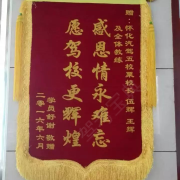 赠：怀化汽驾五校覃校长 伍辉 王辉
及全体教练
感恩情永难忘
愿驾校更辉煌
学员好谢 敬赠
二零一六年六月